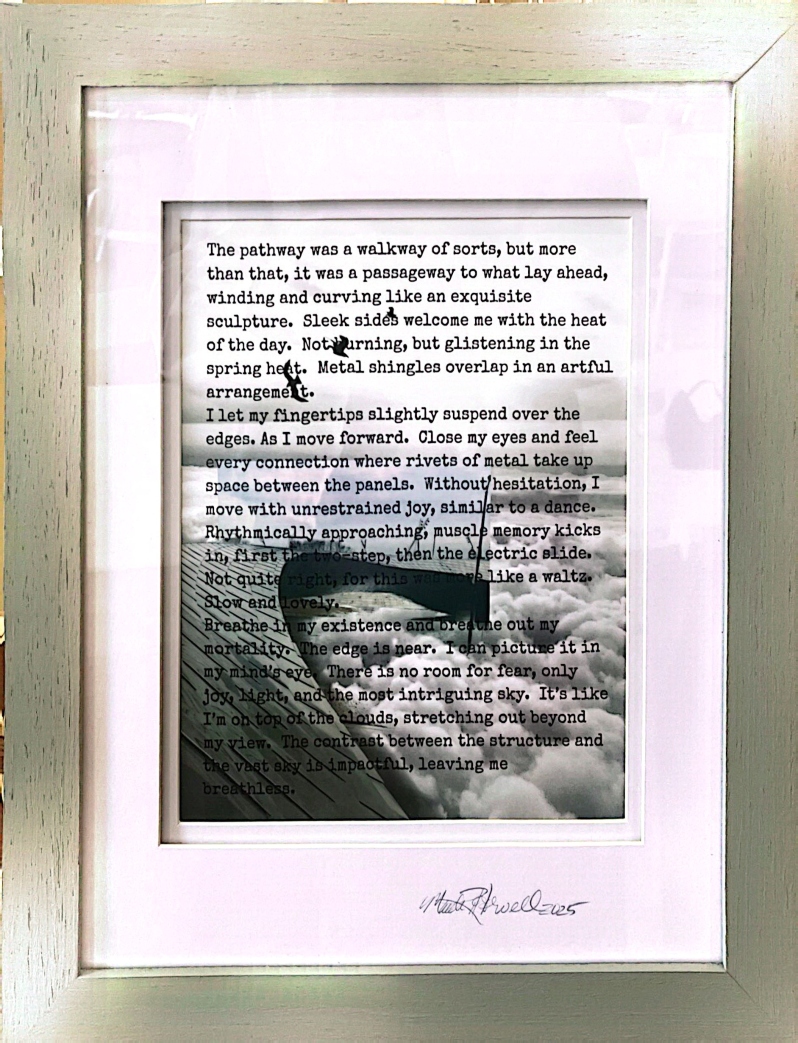 The pathway was a walkway of sorts, but more
than that, it was a passageway to what lay ahead,
winding and curving like an exquisite
sculpture. Sleek sides welcome me with the heat
of the day. Not burning, but glistening in the
spring heat. Metal shingles overlap in an artful
arrangement.
I let my fingertips slightly suspend over the
edges. As I move forward. Close my eyes and feel
every connection where rivets of metal take up
space between the panels. Without hesitation, I
move with unrestrained joy, similar to a dance.
Rhythmically approaching, muscle memory kicks
in, first the two-step, then the electric slide.
Not quite right, for this was more like a waltz.
Slow and lovely.
Breathe in my existence and breathe out my
mortality. The edge is near. I can picture it in
my mind's eye. There is no room for fear, only
joy, light, and the most intriguing sky. It's like
I'm on top of the clouds, stretching out beyond
my view. The contrast between the structure and
the vast sky is impactful, leaving me
breathless.
2025